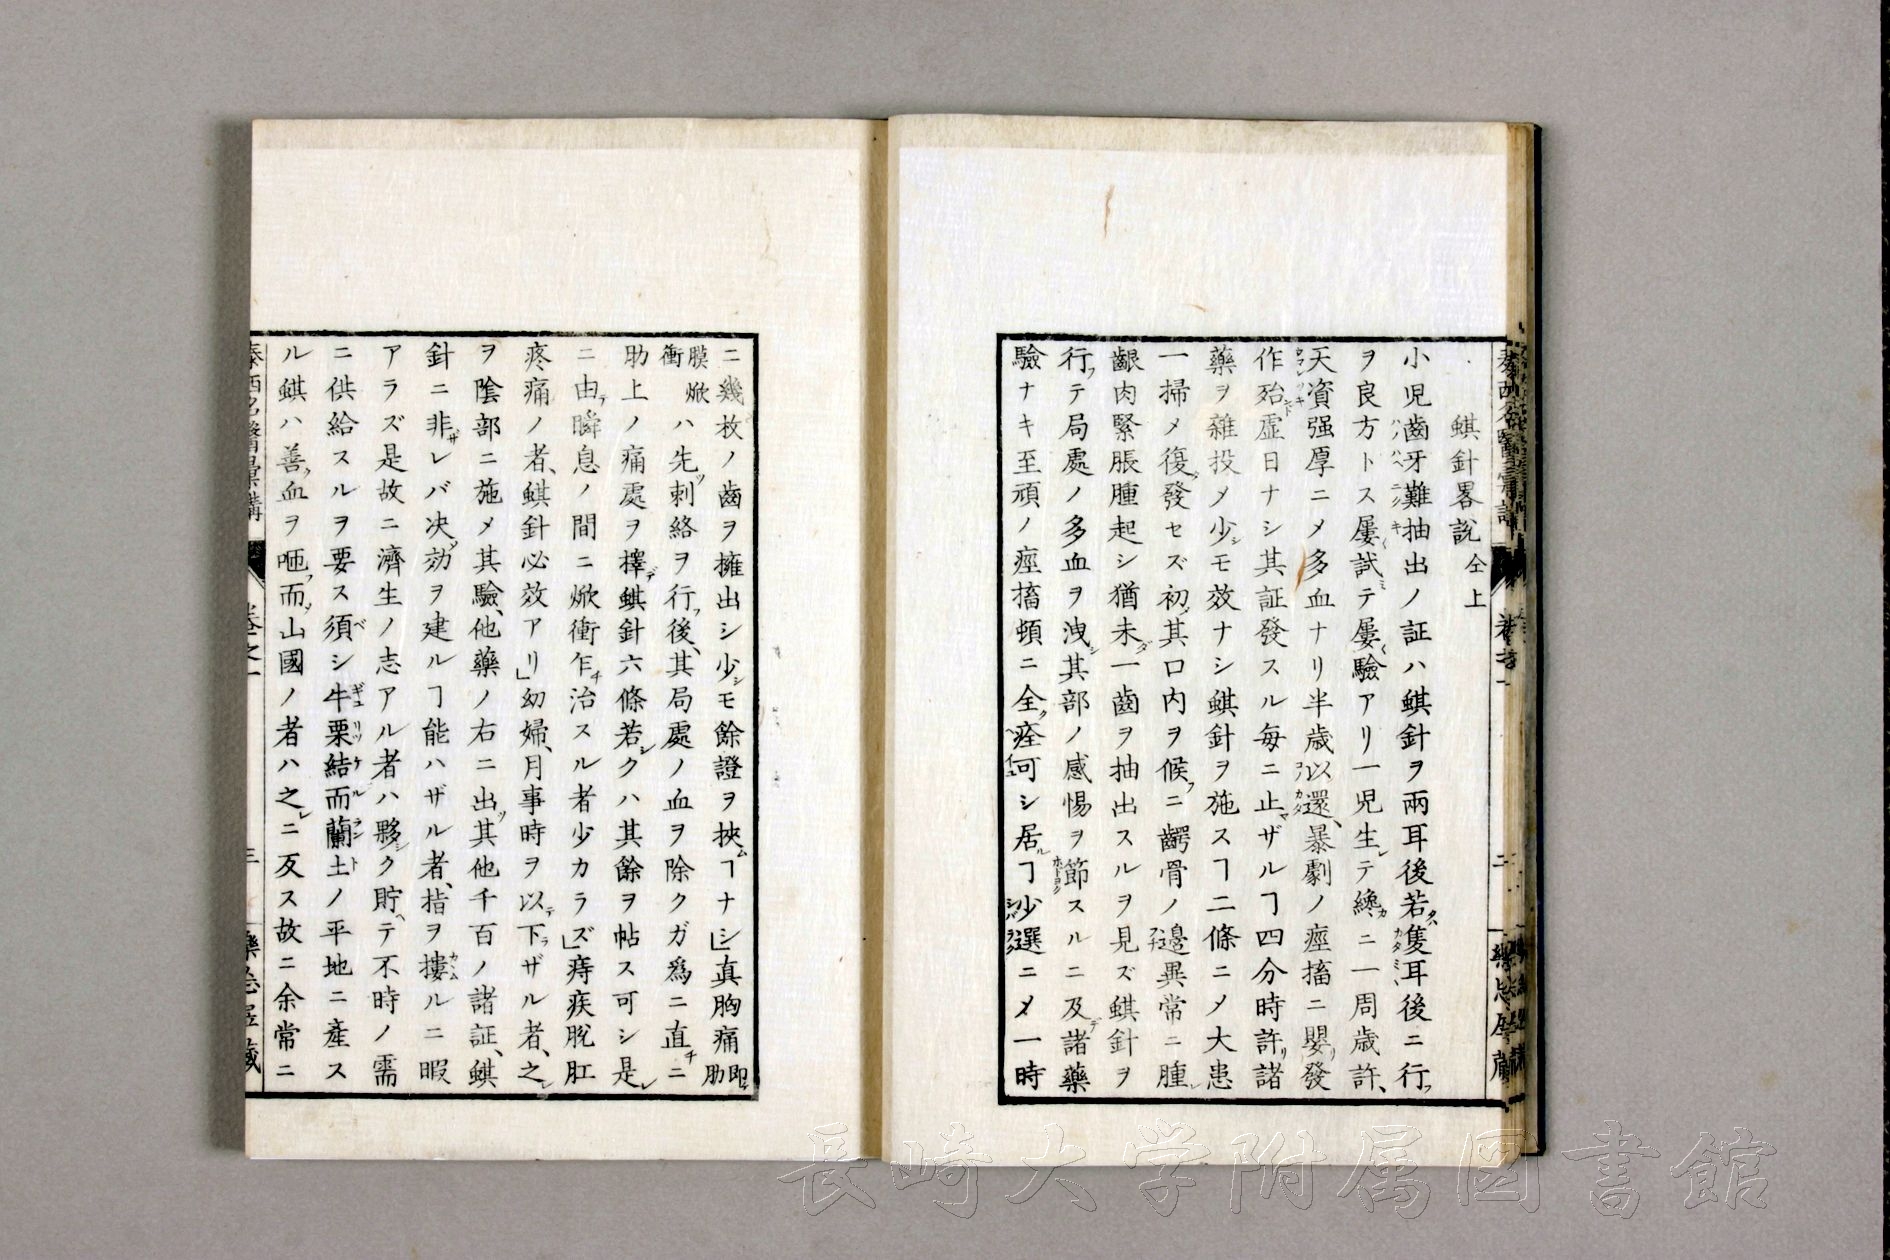 蜞針畧説 仝上
小児齒牙難抽出ノ証ハ蜞針ヲ兩耳後若隻耳後ニ行
ヲ良方トス屡試テ屡驗アリ一児生テ纔ニ一周歳許、
天資强厚ニメ多血ナリ半歳以還、暴劇ノ痙搐ニ嬰發
作殆虚日ナシ其証發スル毎ニ止ザルヿ四分時許諸
藥ヲ雜投メ少モ效ナシ蜞針ヲ施スヿ二條ニメ大患
一掃メ復發セズ初其口内ヲ候ニ齶骨ノ邉異常ニ腫
齦肉緊脹腫起シ猶未一齒ヲ抽出スルヲ見ズ蜞針ヲ
行テ局處ノ多血ヲ洩其部ノ感惕ヲ節スルニ及諸藥
驗ナキ至頑ノ痙搐頓ニ全痊可シ居ヿ少選ニメ一時
ニ幾枚ノ齒ヲ擁出シ少モ餘證ヲ挾ヿナシ」真胸痛即肋
膜焮衝ハ先刺絡ヲ行後、其局處ノ血ヲ除クガ爲ニ直ニ
肋上ノ痛處ヲ擇蜞針六條若クハ其餘ヲ帖ス可シ是
ニ由瞬息ノ間ニ焮衝乍治スル者少カラズ」痔疾脱肛
疼痛ノ者、蜞針必效アリ」幼婦、月事時ヲ以下ザル者、之
ヲ陰部ニ施メ其驗、他藥ノ右ニ出其他千百ノ諸証、蜞
針ニ非レバ决効ヲ建ルヿ能ハザル者、指ヲ摟ルニ暇
アラズ是故ニ濟生ノ志アル者ハ夥ク貯テ不時ノ需
ニ供給スルヲ要ス須シ牛栗結而蘭土ノ平地ニ産ス
ル蜞ハ善血ヲ咂而山國ノ者ハ之ニ反ス故ニ余常ニ
泰西名醫彙講 卷之一 三
長崎大学附属図書館